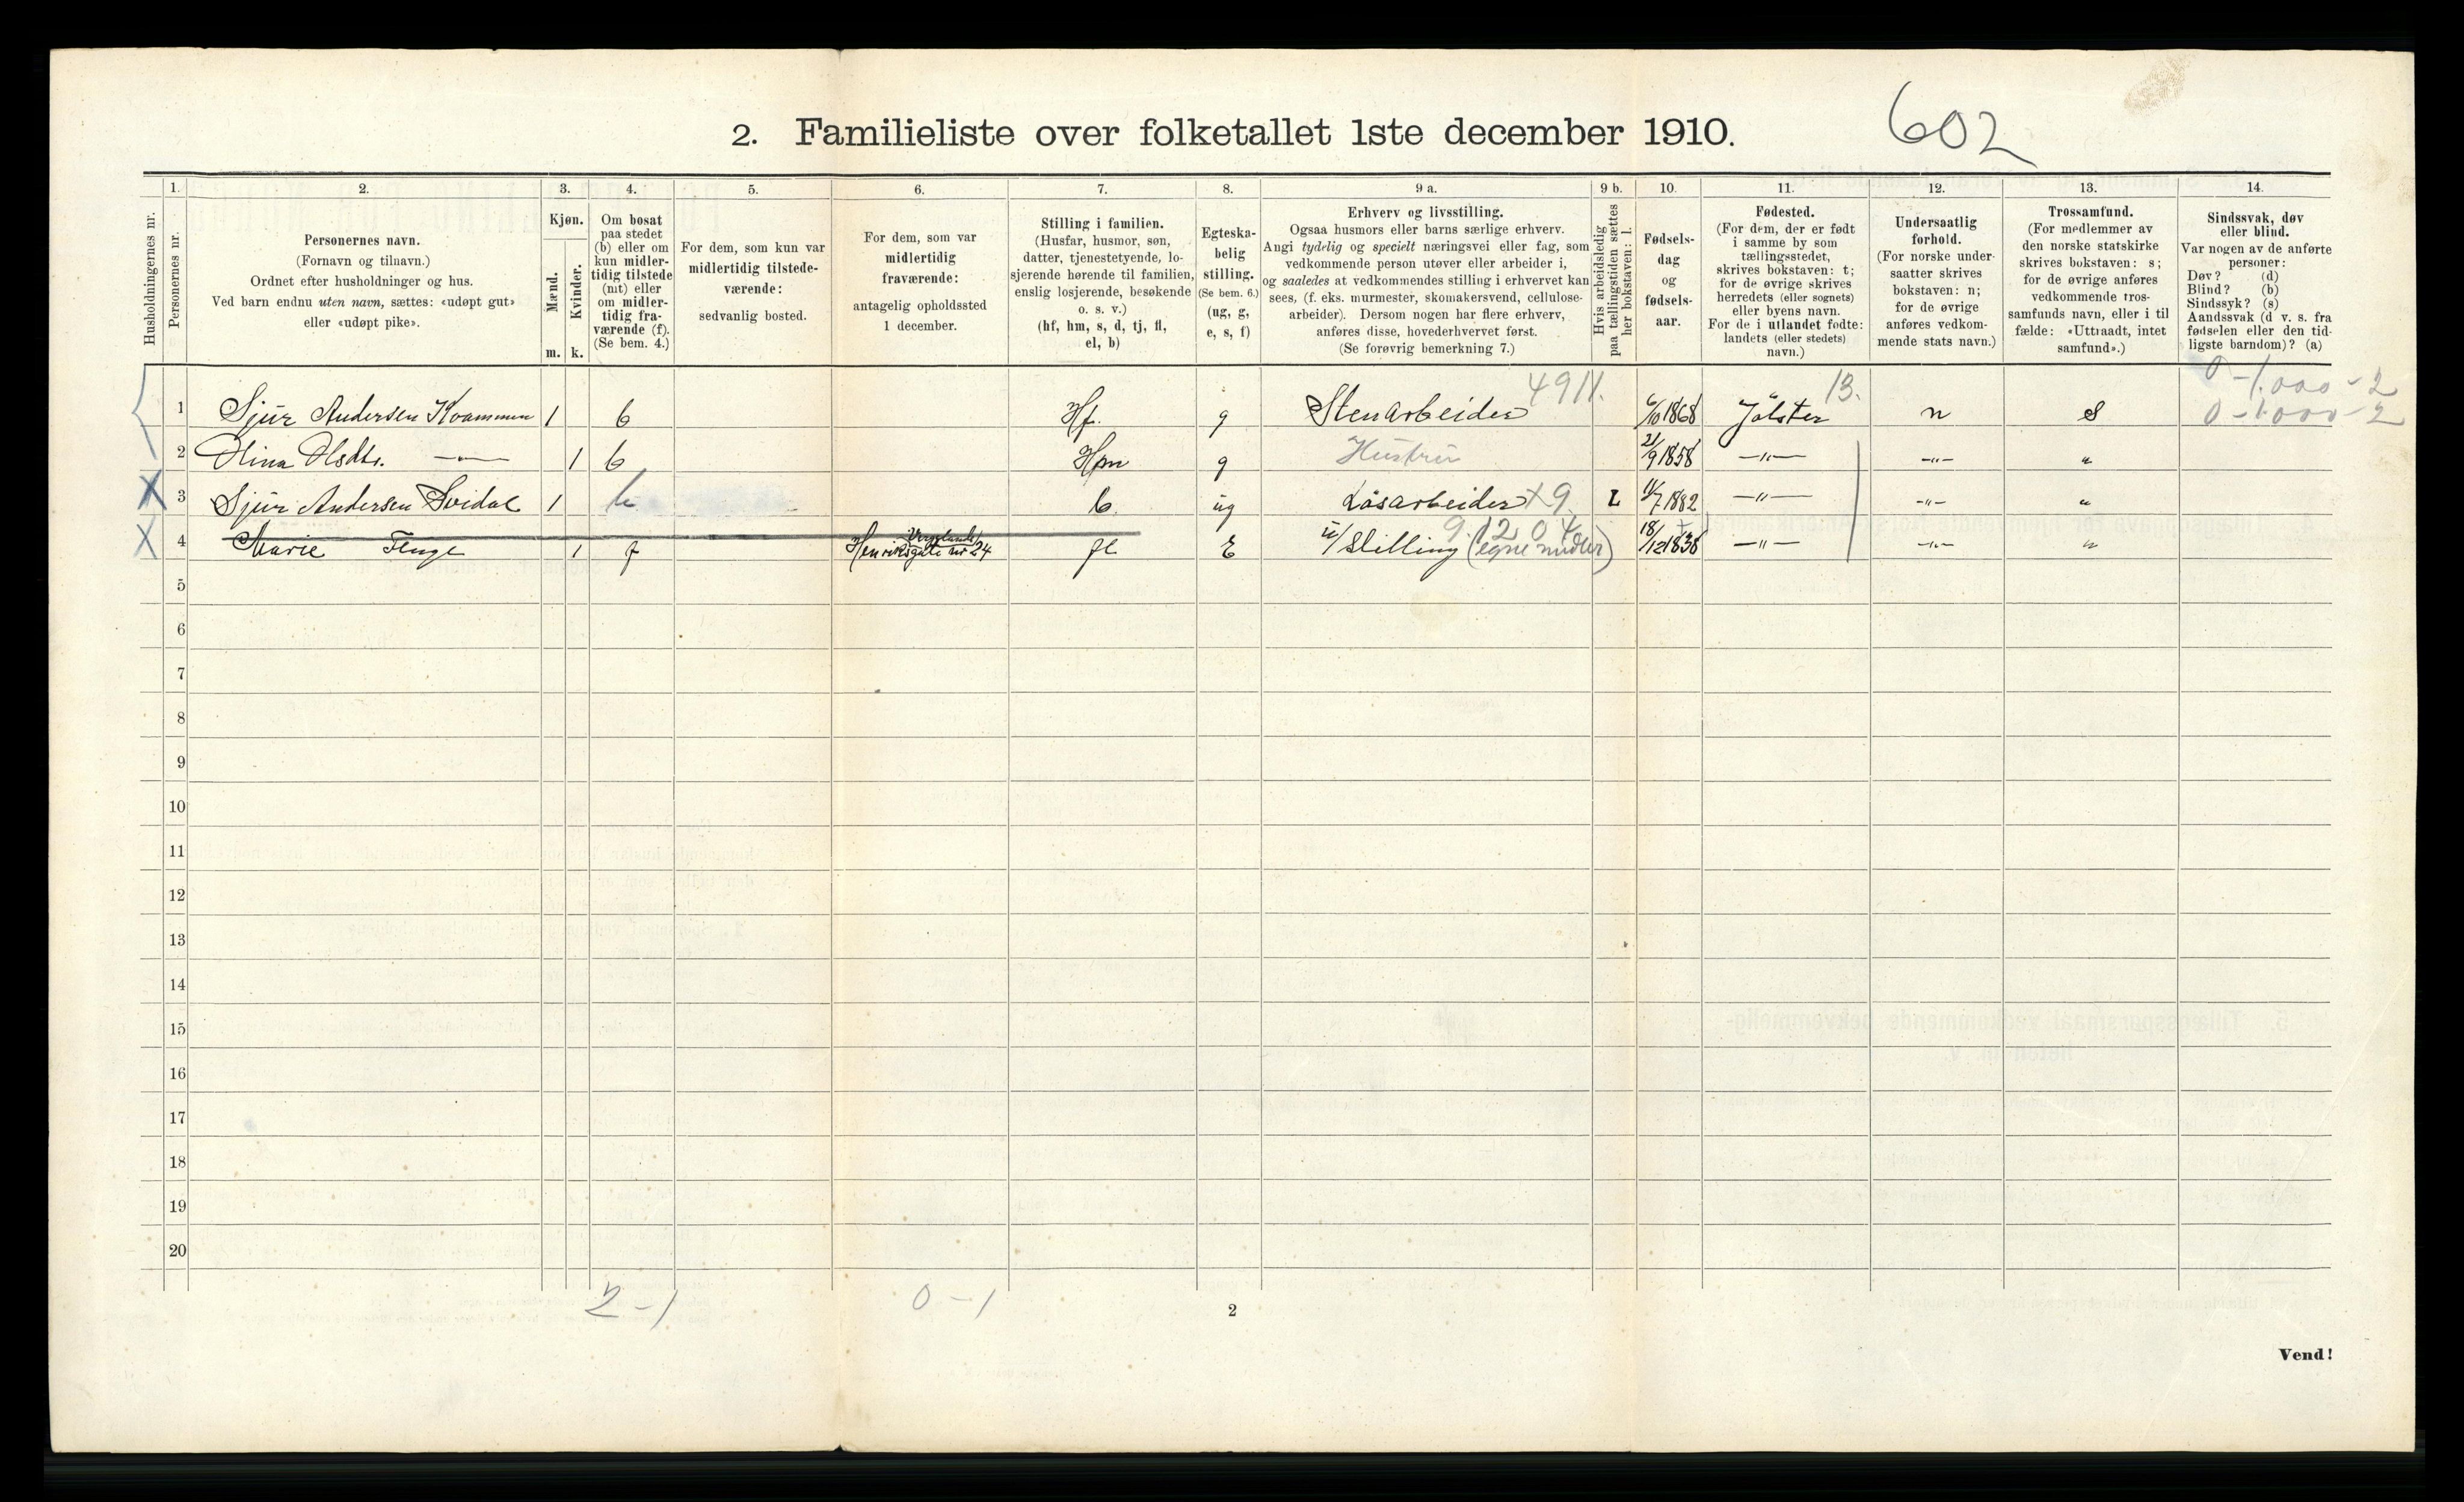 2. Familieliste over folketallet 1ste december 1910.
602
Husholdningernes nr.
1.
Personernes nr.
2.
Personernes navn.
(Fornavn og tilnavn.)
Ordnet efter husholdninger og hus.
Ved barn endnu uten navn, sættes: «udøpt gut»
eller «udøpt pike».
3.
Kjøn.
Mænd.
Kvinder.
m. k.
4.
Om bosat
paa stedet
(b) eller om
kun midler-
tidig tilstede
(mt) eller
om midler-
tidig fra-
værende (f).
(Se bem. 4.)
5.
For dem, som kun var
midlertidig tilstede-
værende:
sedvanlig bosted.
6.
For dem, som var
midlertidig
fraværende:
antagelig opholdssted
1 december.
7.
Stilling i familien.
(Husfar, husmor, søn,
datter, tjenestetyende, lo-
sjerende hørende til familien,
enslig losjerende, besøkende
o. s. v.)
(hf, hm, s, d, tj, fl,
el, b)
8.
Egteska-
belig
stilling.
(Se bem. 6.)
(ug, g,
e, s, f)
9 a.
Erhverv og livsstilling.
Ogsaa husmors eller barns særlige erhverv.
Angi tydelig og specielt næringsvei eller fag, som
vedkommende person utøver eller arbeider i,
og saaledes at vedkommendes stilling i erhvervet kan
sees, (f. eks. murmester, skomakersvend, cellulose-
arbeider). Dersom nogen har flere erhverv,
anføres disse, hovederhvervet først.
(Se forøvrig bemerkning 7.)
9 b.
Hvis arbeidsledig
paa tællingstiden sættes
her bokstaven: l.
10.
Fødsels-
dag
og
fødsels-
aar.
11.
Fødested.
(For dem, der er født
i samme by som
tællingsstedet,
skrives bokstaven: t;
for de øvrige skrives
herredets (eller sognets)
eller byens navn.
For de i utlandet fødte:
landets (eller stedets)
navn.)
12.
Undersaatlig
forhold.
(For norske under-
saatter skrives
bokstaven: n;
for de øvrige
anføres vedkom-
mende stats navn.)
13.
Trossamfund.
(For medlemmer av
den norske statskirke
skrives bokstaven: s;
for de øvrige anføres
vedkommende tros-
samfunds navn, eller i til
fælde: «Uttraadt, intet
samfund».)
14.
Sindssvak, døv
eller blind.
Var nogen av de anførte
personer:
Døv? (d)
Blind? (b)
Sindssyk? (s)
Aandssvak (d v. s. fra
fødselen eller den tid-
ligste barndom)? (a)
4911. 13. 0-1.000-2
1 Sjur Andersen Kvammen 1 b Hf. g Stenarbeider 6/10 1868 Jølster n s 0-1.000-2
2 Olina Olsdtr. —"— 1 b Hm g Hustru 21/9 1858 —"— —"— "
3 Sjur Andersen Svidal 1 b b ug Løsarbeider X9 L 11/7 1882 —"— —"— "
9.1204
4 Marie 1 f Henriks gate nr 24 fl E u/Stilling (egne midler) 18/12 1838 —"— —"— "
5
6
7
8
9
10
11
12
13
14
15
16
17
18
19
20
2-1 0-1
2
Vend!